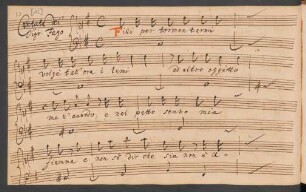 Cantata Del
Sigr Fago
Filli per tormentarmi
volgi tal'ora i lumi ad altro oggetto
ma t'accendo, e nel petto sento mia
fiamma e non sò dir che sia non è il